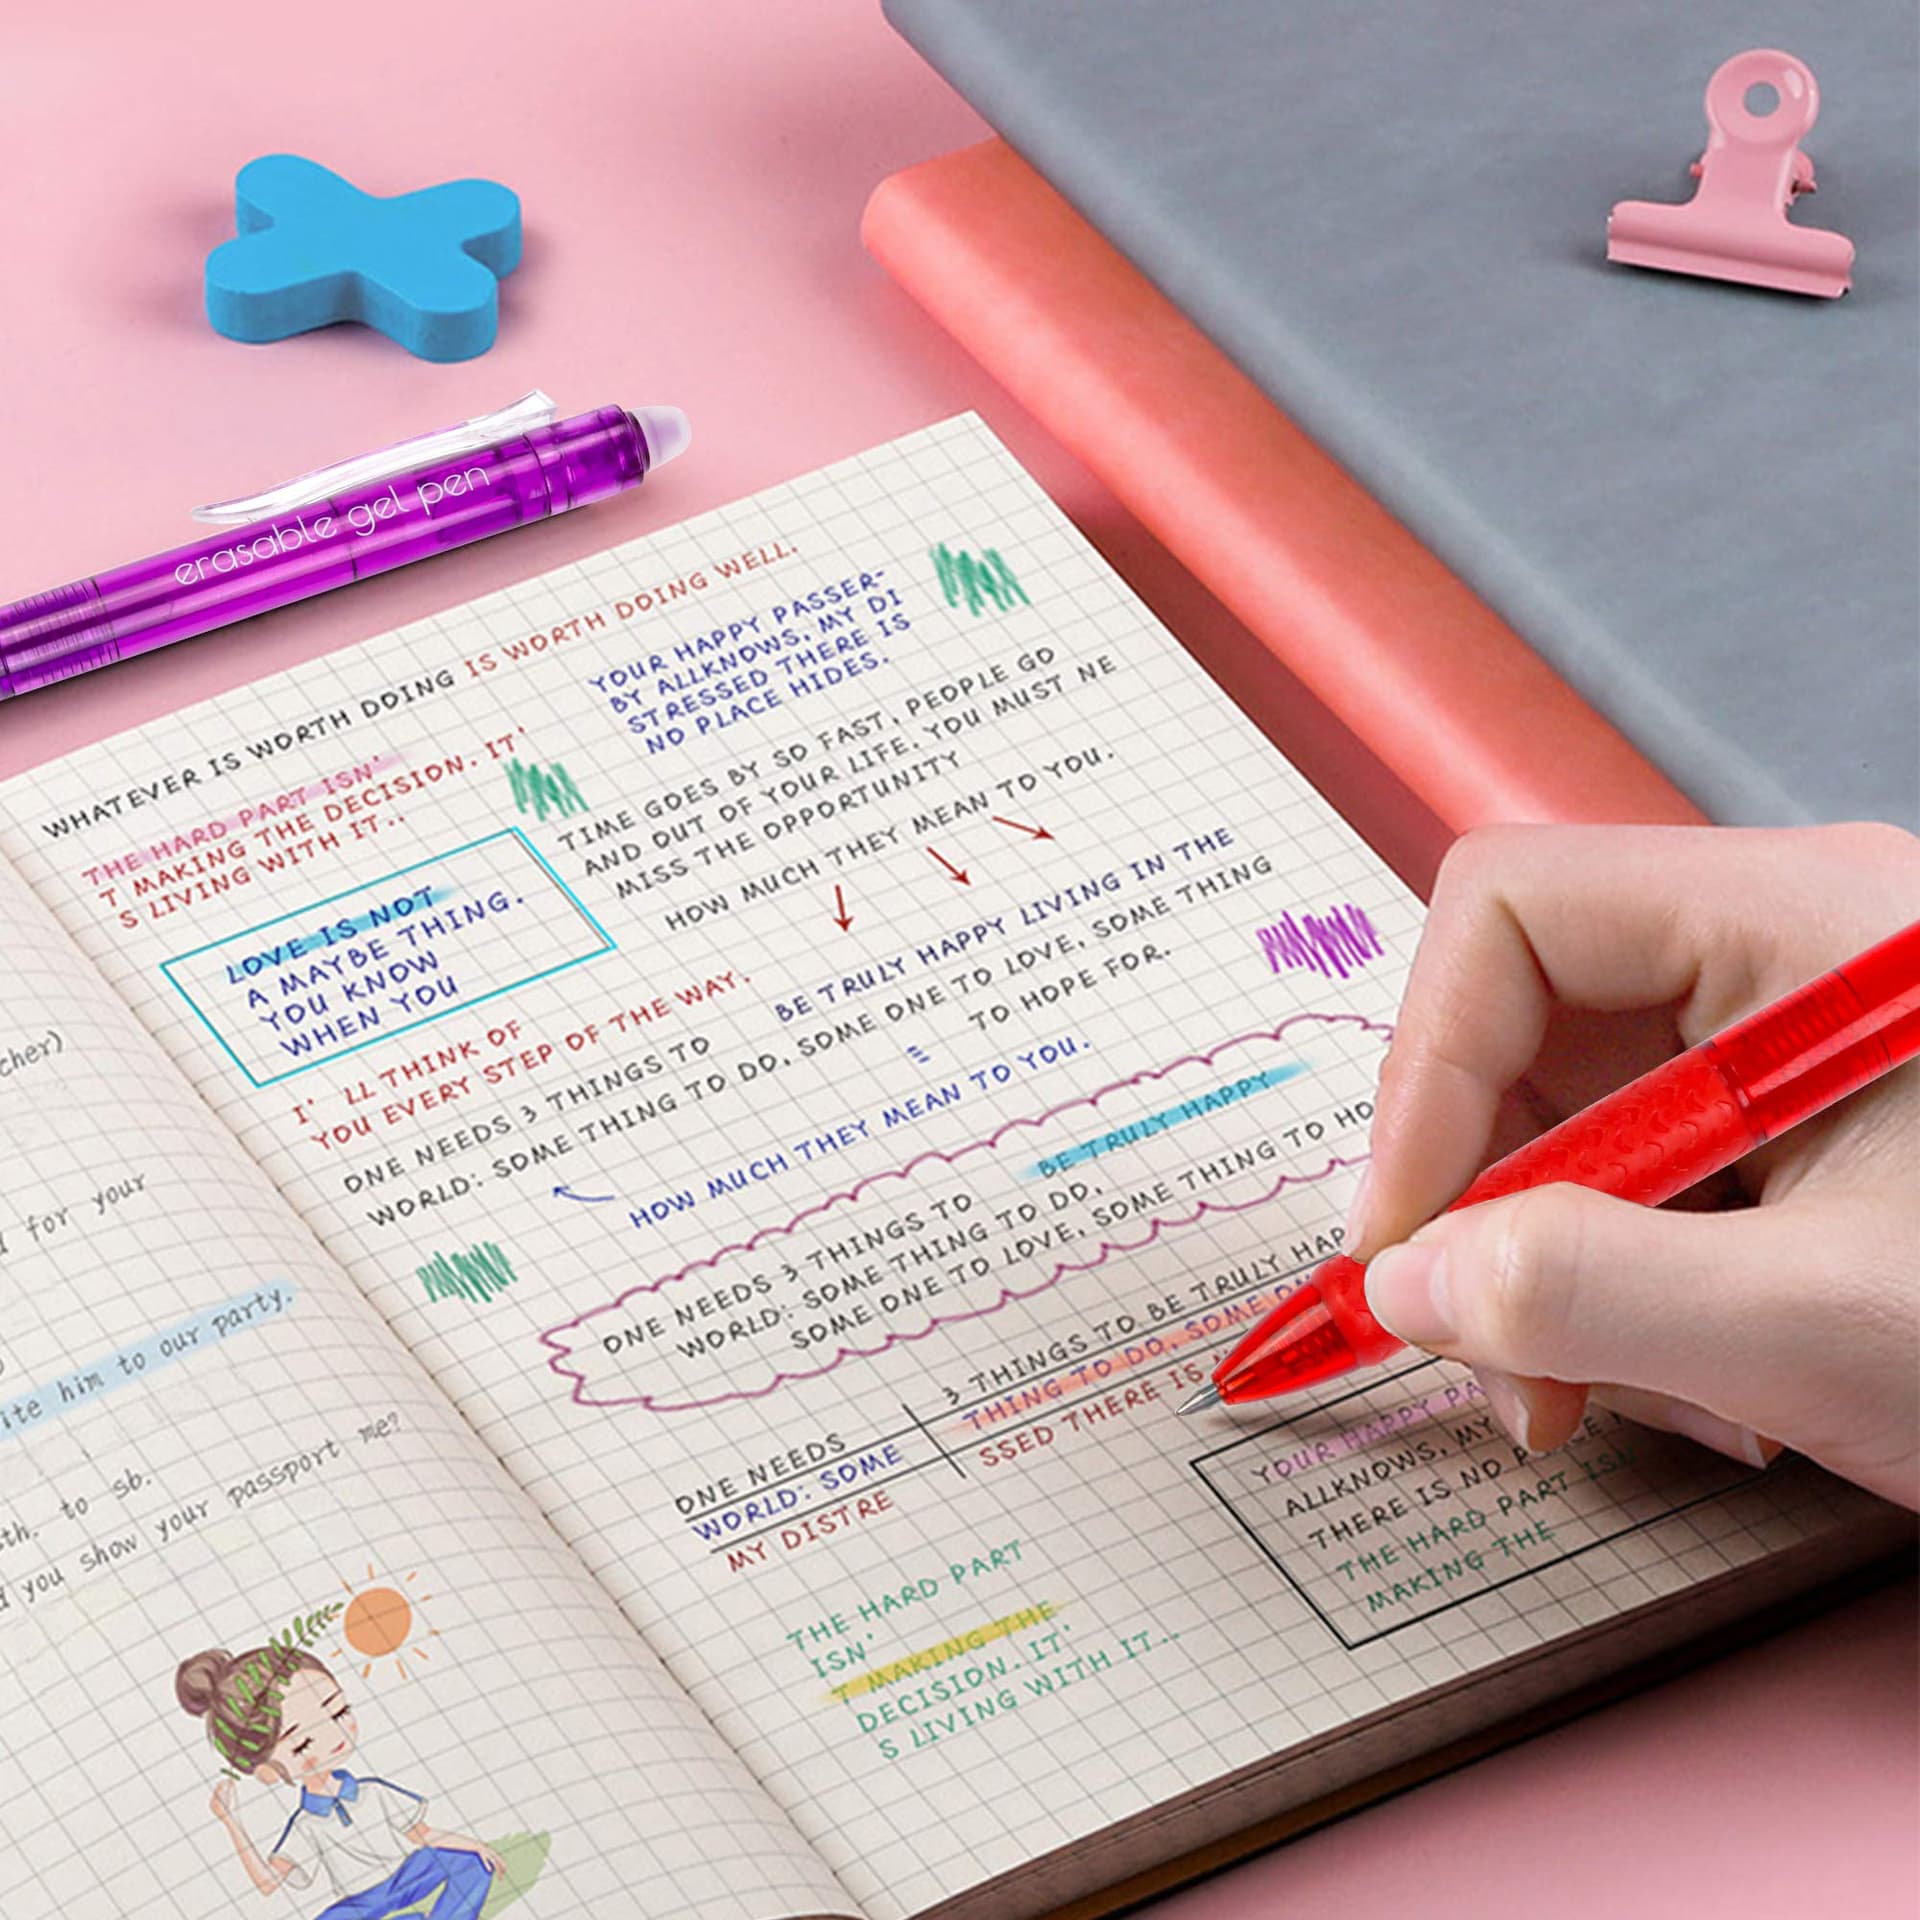 erasable gel pen
WHATEVER IS WORTH DOING IS WORTH DOING WELL.
THE HARD PART ISN'
T MAKING THE DECISION. IT'
S LIVING WITH IT..
YOUR HAPPY PASSER-
BY ALLKNOWS, MY DI
STRESSED THERE IS
NO PLACE HIDES.
TIME GOES BY SO FAST, PEOPLE GO
AND OUT OF YOUR LIFE. YOU MUST NE
MISS THE OPPORTUNITY
HOW MUCH THEY MEAN TO YOU.
LOVE IS NOT
A MAYBE THING.
YOU KNOW
WHEN YOU
I' LL THINK OF
YOU EVERY STEP OF THE WAY.
BE TRULY HAPPY LIVING IN THE
ONE NEEDS 3 THINGS TO
WORLD: SOME THING TO DO, SOME ONE TO LOVE, SOME THING
TO HOPE FOR.
HOW MUCH THEY MEAN TO YOU.
BE TRULY HAPPY
ONE NEEDS 3 THINGS TO
WORLD: SOME THING TO DO,
SOME ONE TO LOVE, SOME THING TO HO
3 THINGS TO BE TRULY HAP
THING TO DO, SOME
SSED THERE IS
ONE NEEDS
WORLD: SOME
MY DISTRE
YOUR HAPPY PA
ALLKNOWS, MY
THERE IS NO
THE HARD PART ISN
MAKING THE
THE HARD PART
ISN'
T MAKING THE
DECISION. IT'
S LIVING WITH IT..
cher)
for your
ite him to our party.
th. to sb.
d you show your passport me?